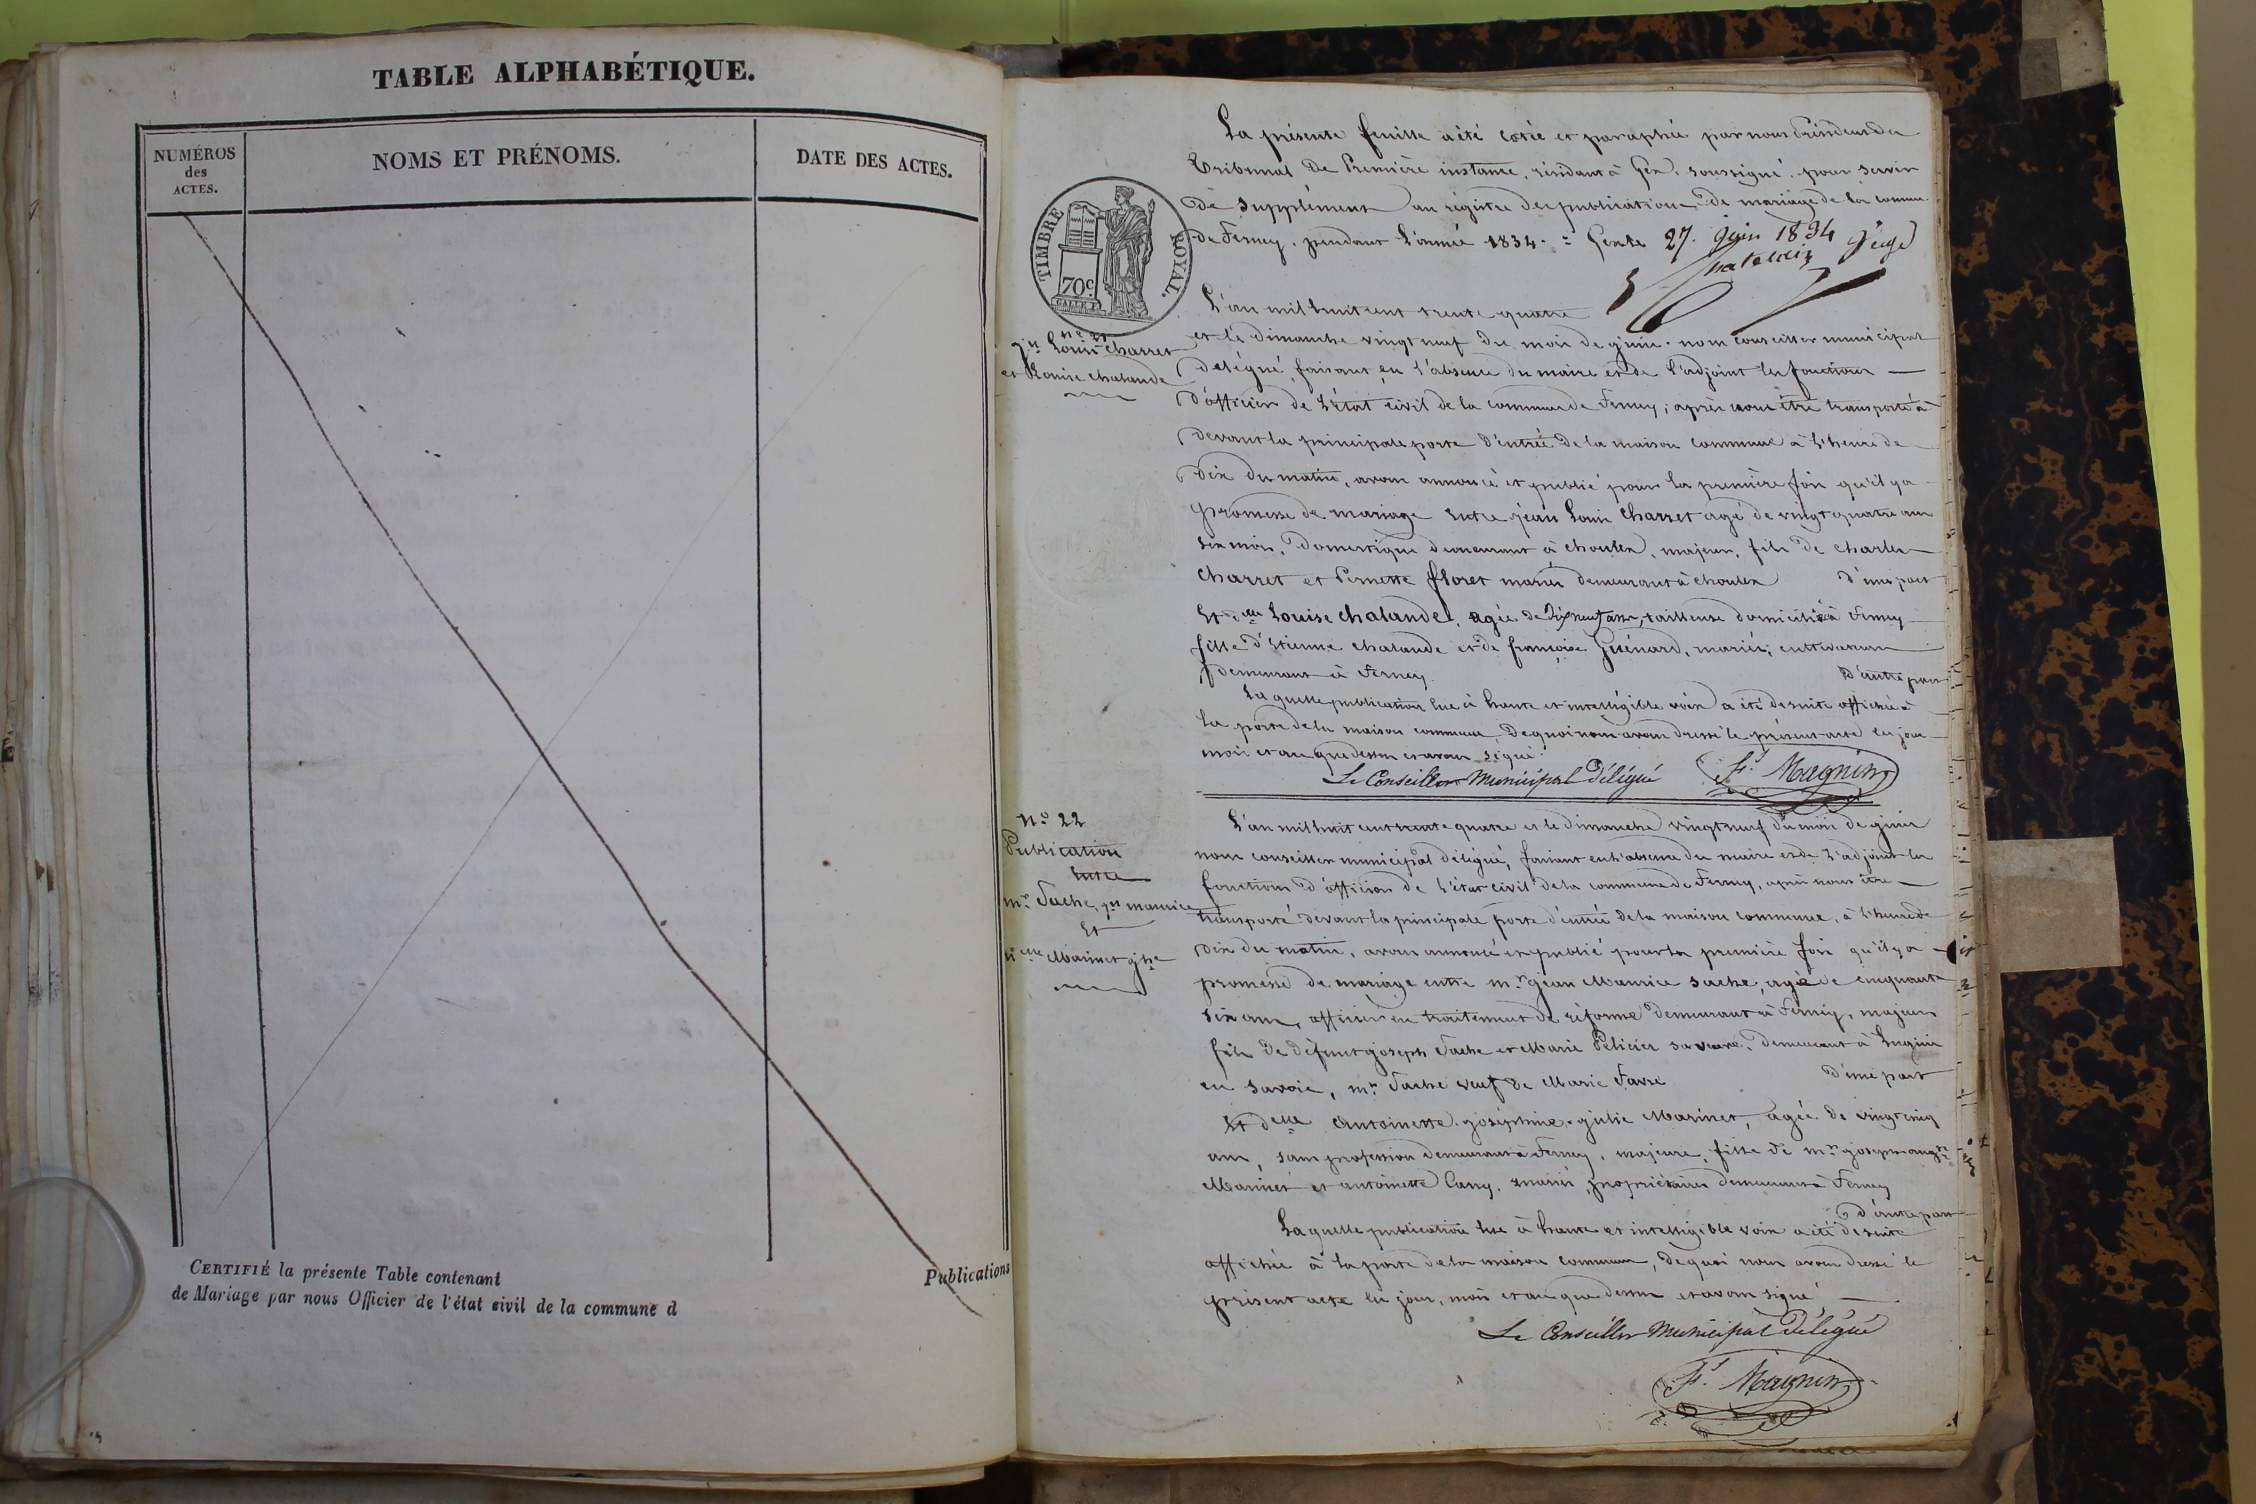 TABLE ALPHABÉTIQUE.
NUMÉROS
des
ACTES.
NOMS ET PRÉNOMS.
DATE DES ACTES.
CERTIFIÉ la présente Table contenant
Publications
de Mariage par nous Officier de l'état civil de la commune d
La présente feuille a été cotée et paraphée par nous Président du
Tribunal de Première instance, résidant à Gex, soussigné, pour servir
de supplément au registre des publications de mariage de la commune
de Ferney, pendant l'année 1834. = Gex le 27. juin 1834
TIMBRE ROYAL.
70c
L'an mil huit cent trente quatre
et le dimanche vingt neuf du mois de juin. nous conseiller municipal
délégué, faisant en l'absence du maire et de l'adjoint les fonctions
d'officier de l'état civil de la commune de Ferney, après nous être transporté
devant la principale porte d'entrée de la maison commune à l'heure de
dix du matin, avons annoncé et publié pour la première fois qu'il y a
promesse de mariage entre jean Louis Charret agé de vingt quatre ans
six mois, domestique demeurant à choulex, majeur, fils de charles
Charret et Pernette floret mariés demeurant à choulex d'une part
Et delle Louise chalande, agée de dix neuf ans, tailleuse domiciliée à Ferney
fille d'Etienne chalande et de françoise Guénard, mariés, cultivateurs
demeurant à Ferney. d'autre part
Laquelle publication lue à haute et intelligible voix a été de suite affichée à
la porte de la maison commune, de quoi nous avons dressé le présent acte les jour
mois et an que dessus et avons signé
Le Conseiller Municipal Délégué F. Magnin
n° 21
jn Louis charret
et Louise chalande
N° 22
Publication
Entre
mr Suche, jn maurice
Et
delle Marinet
L'an mil huit cent trente quatre et le dimanche vingt neuf du mois de juin
nous conseiller municipal délégué, faisant en l'absence du maire et de l'adjoint les
fonctions d'officier de l'état civil de la commune de Ferney, après nous être
transporté devant la principale porte d'entrée de la maison commune, à l'heure de
dix du matin, avons annoncé et publié pour la première fois qu'il y a
promesse de mariage entre mr jean Maurice Suche, agé de cinquante
six ans, officier en traitement de réforme demeurant à Ferney, majeur
fils de défunt joseph Suche et Marie Pelicier sa veuve, demeurant à
en Savoie, mr Suche veuf de Marie Favre d'une part
Et delle Antoinette joséphine julie Marinet, agée de vingt cinq
ans, sans profession demeurant à Ferney, majeure, fille de mr joseph augte
Marinet et antoinette Cany, mariés, propriétaires demeurant à Ferney
d'autre part
Laquelle publication lue à haute et intelligible voix a été de suite
affichée à la porte de la maison commune, de quoi nous avons dressé le
présent acte les jour, mois et an que dessus et avons signé
Le Conseiller Municipal Délégué
F. Magnin